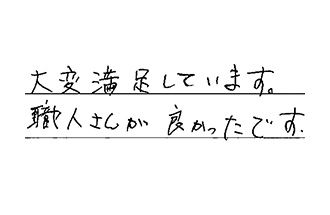 大変満足しています。
職人さんが良かったです.